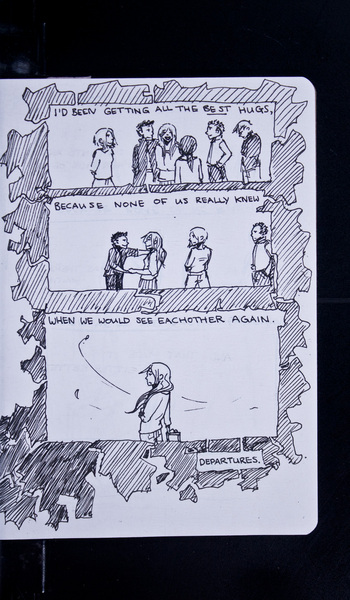 I'D BEEN GETTING ALL THE BEST HUGS,
BECAUSE NONE OF US REALLY KNEW
WHEN WE WOULD SEE EACHOTHER AGAIN.
DEPARTURES.